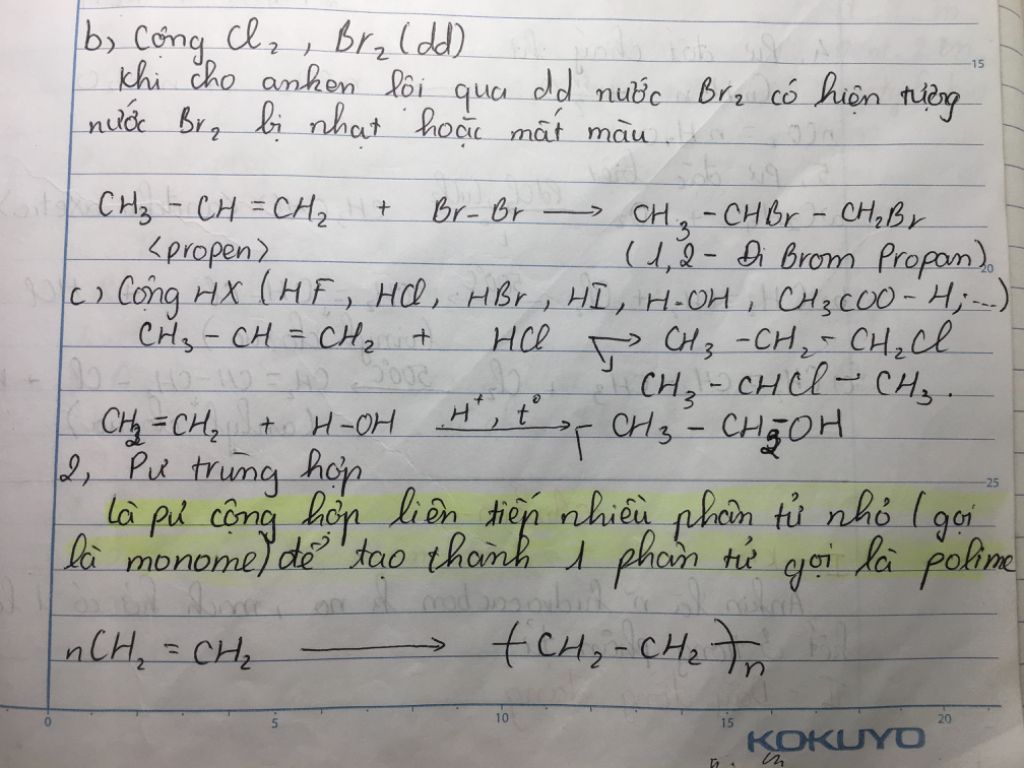 b) Cộng Cl₂, Br₂ (dd)
15
Khi cho anken lội qua dd nước Br₂ có hiện tượng
nước Br₂ bị nhạt hoặc mất màu.
CH₃ - CH = CH₂ + Br-Br → CH₃ - CHBr - CH₂Br
<propen> (1,2 - Đi Brom Propan)
20
c) Cộng HX (HF, HCl, HBr, HI, H-OH, CH₃COO-H;...)
CH₃ - CH = CH₂ + HCl → CH₃ - CH₂ - CH₂Cl
CH₃ - CHCl - CH₃.
CH₂=CH₂ + H-OH H⁺, t° → CH₃ - CH₂-OH
2, Pư trùng hợp
25
là pư cộng hợp liên tiếp nhiều phân tử nhỏ (gọi
là monome) để tạo thành 1 phân tử gọi là polime
nCH₂ = CH₂ → (CH₂-CH₂)n
0 5 10 15 20
KOKUYO